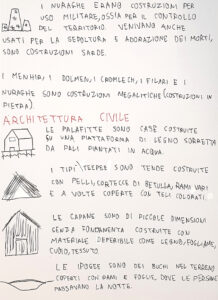 I NURAGHE ERANO COSTRUZIONI PER
USO MILITARE, OSSIA PER IL CONTROLLO
DEL TERRITORIO. VENIVANO ANCHE
USATI PER LA SEPOLTURA E ADORAZIONE DEI MORTI,
SONO COSTRUZIONI SARDE.
I MENHIR, I DOLMEN, I CROMLECH, I FILARI E I
NURAGHE SONO COSTRUZIONI MEGALITICHE (COSTRUZIONI IN
PIETRA).
ARCHITETTURA CIVILE
LE PALAFITTE SONO CASE COSTRUITE
SU UNA PIATTAFORMA DI LEGNO SORRETTA
DA PALI PIANTATI IN ACQUA.
I TIPI\TEEPEE SONO TENDE COSTRUITE
CON PELLI, CORTECCE DI BETULLA, RAMI VARI
E A VOLTE COPERTE CON TELI COLORATI.
LE CAPANNE SONO DI PICCOLE DIMENSIONI
SENZA FONDAMENTA COSTRUITE CON
MATERIALE DEPERIBILE COME LEGNO, FOGLIAME,
CUOIO, TESSUTO
LE IPOGEE SONO DEI BUCHI NEL TERRENO
COPERTI CON RAMI E FOGLIE, DOVE LE PERSONE
PASSAVANO LA NOTTE.